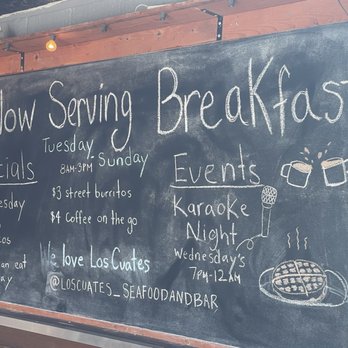 Now Serving Breakfast
Tuesday
8AM-3PM - Sunday
$3 street burritos
$4 Coffee on the go
We love Los Cuates
@LOSCUATES_SEAFOODANDBAR
Events
Karaoke
Night
Wednesday's
7PM-12AM
cials
esday
os
an eat
ay